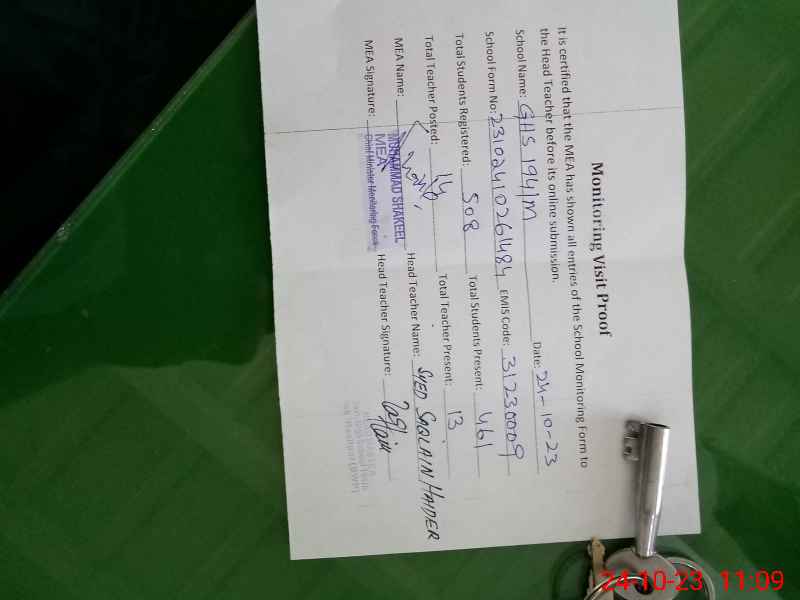 Monitoring Visit Proof
It is certified that the MEA has shown all entries of the School Monitoring Form to
the Head Teacher before its online submission.
School Name: GHS 194/M Date: 24-10-23
School Form No: 23102410261484 EMIS Code: 31230009
Total Students Registered: 508 Total Students Present: 461
Total Teacher Posted: 14 Total Teacher Present: 13
MEA Name: MUHAMMAD SHAKEEL Head Teacher Name: SYED SAQLAIN HAIDER
MEA
MEA Signature: Chief Minister Monitoring Force Head Teacher Signature:
24-10-23 11:09